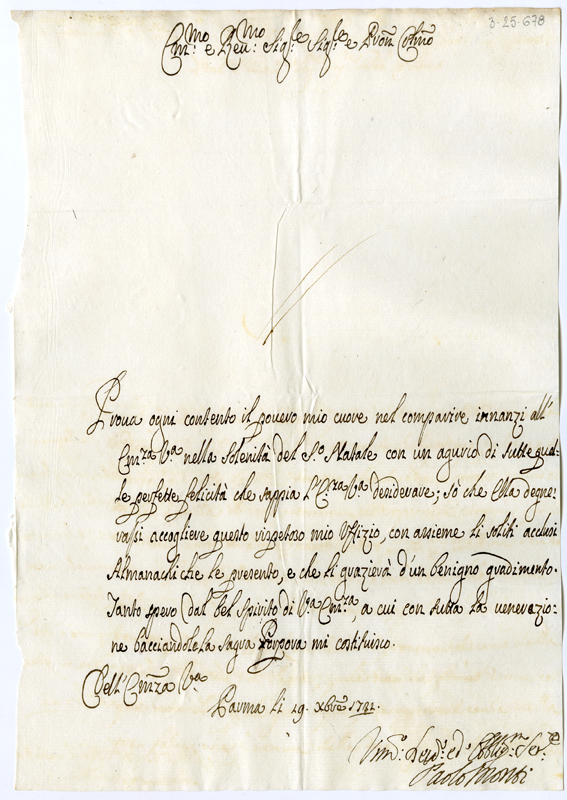 3-25-678
Em:mo e Reu:mo Sig:re Sig:re e Pron Colmo
Proua ogni contento il pouero mio cuore nel comparire innanzi all'
Em:za V:a nella Solenità del S:o Natale con un agurio di tutte quel-
le perfette felicità che sappia l'Em:za V:a desiderare; Sò che Ella degne-
rassi accogliere questo rispetoso mio Uffizio, con assieme li soliti acclusi
Almanachi che le presento, e che li grazierà d'un benigno gradimento.
Tanto spero dal bel Spirito di V:a Em:za, a cui con tutta la venerazio-
ne bacciandole la sagra Porpora mi costituisco.
Dell' Em:za V:a
Parma li 19. Xbre
Um:o Deu:o ed Obblig:mo Ser:e
Paolo Monti